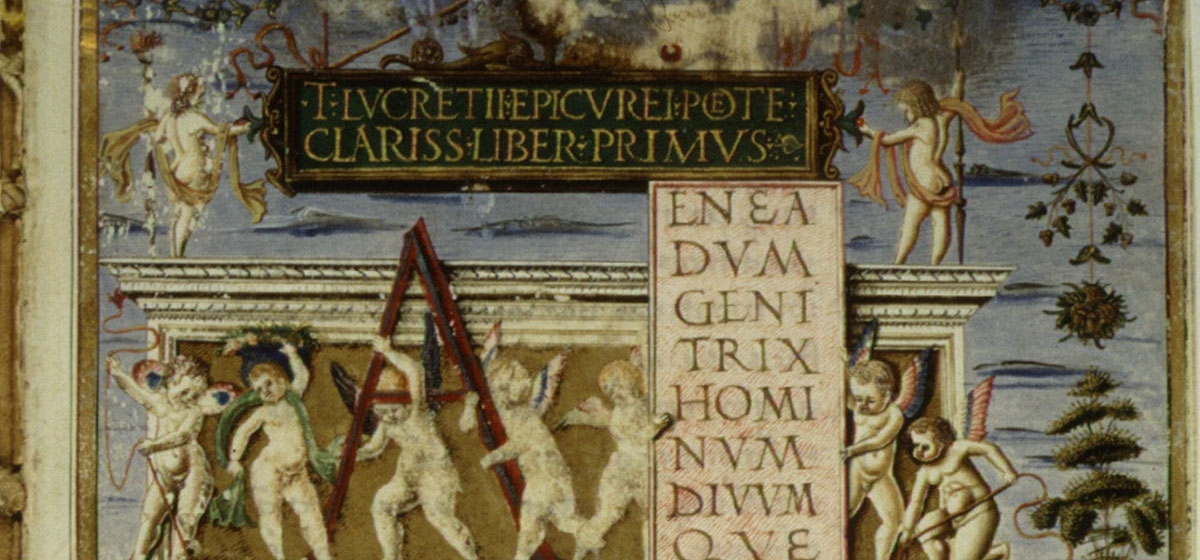 ·T·LVCRETII·EPICVREI·POETE·
CLARISS·LIBER·PRIMVS·
A
ENEA
DVM
GENI
TRIX
HOMI
NVM
DIVVM
QVE